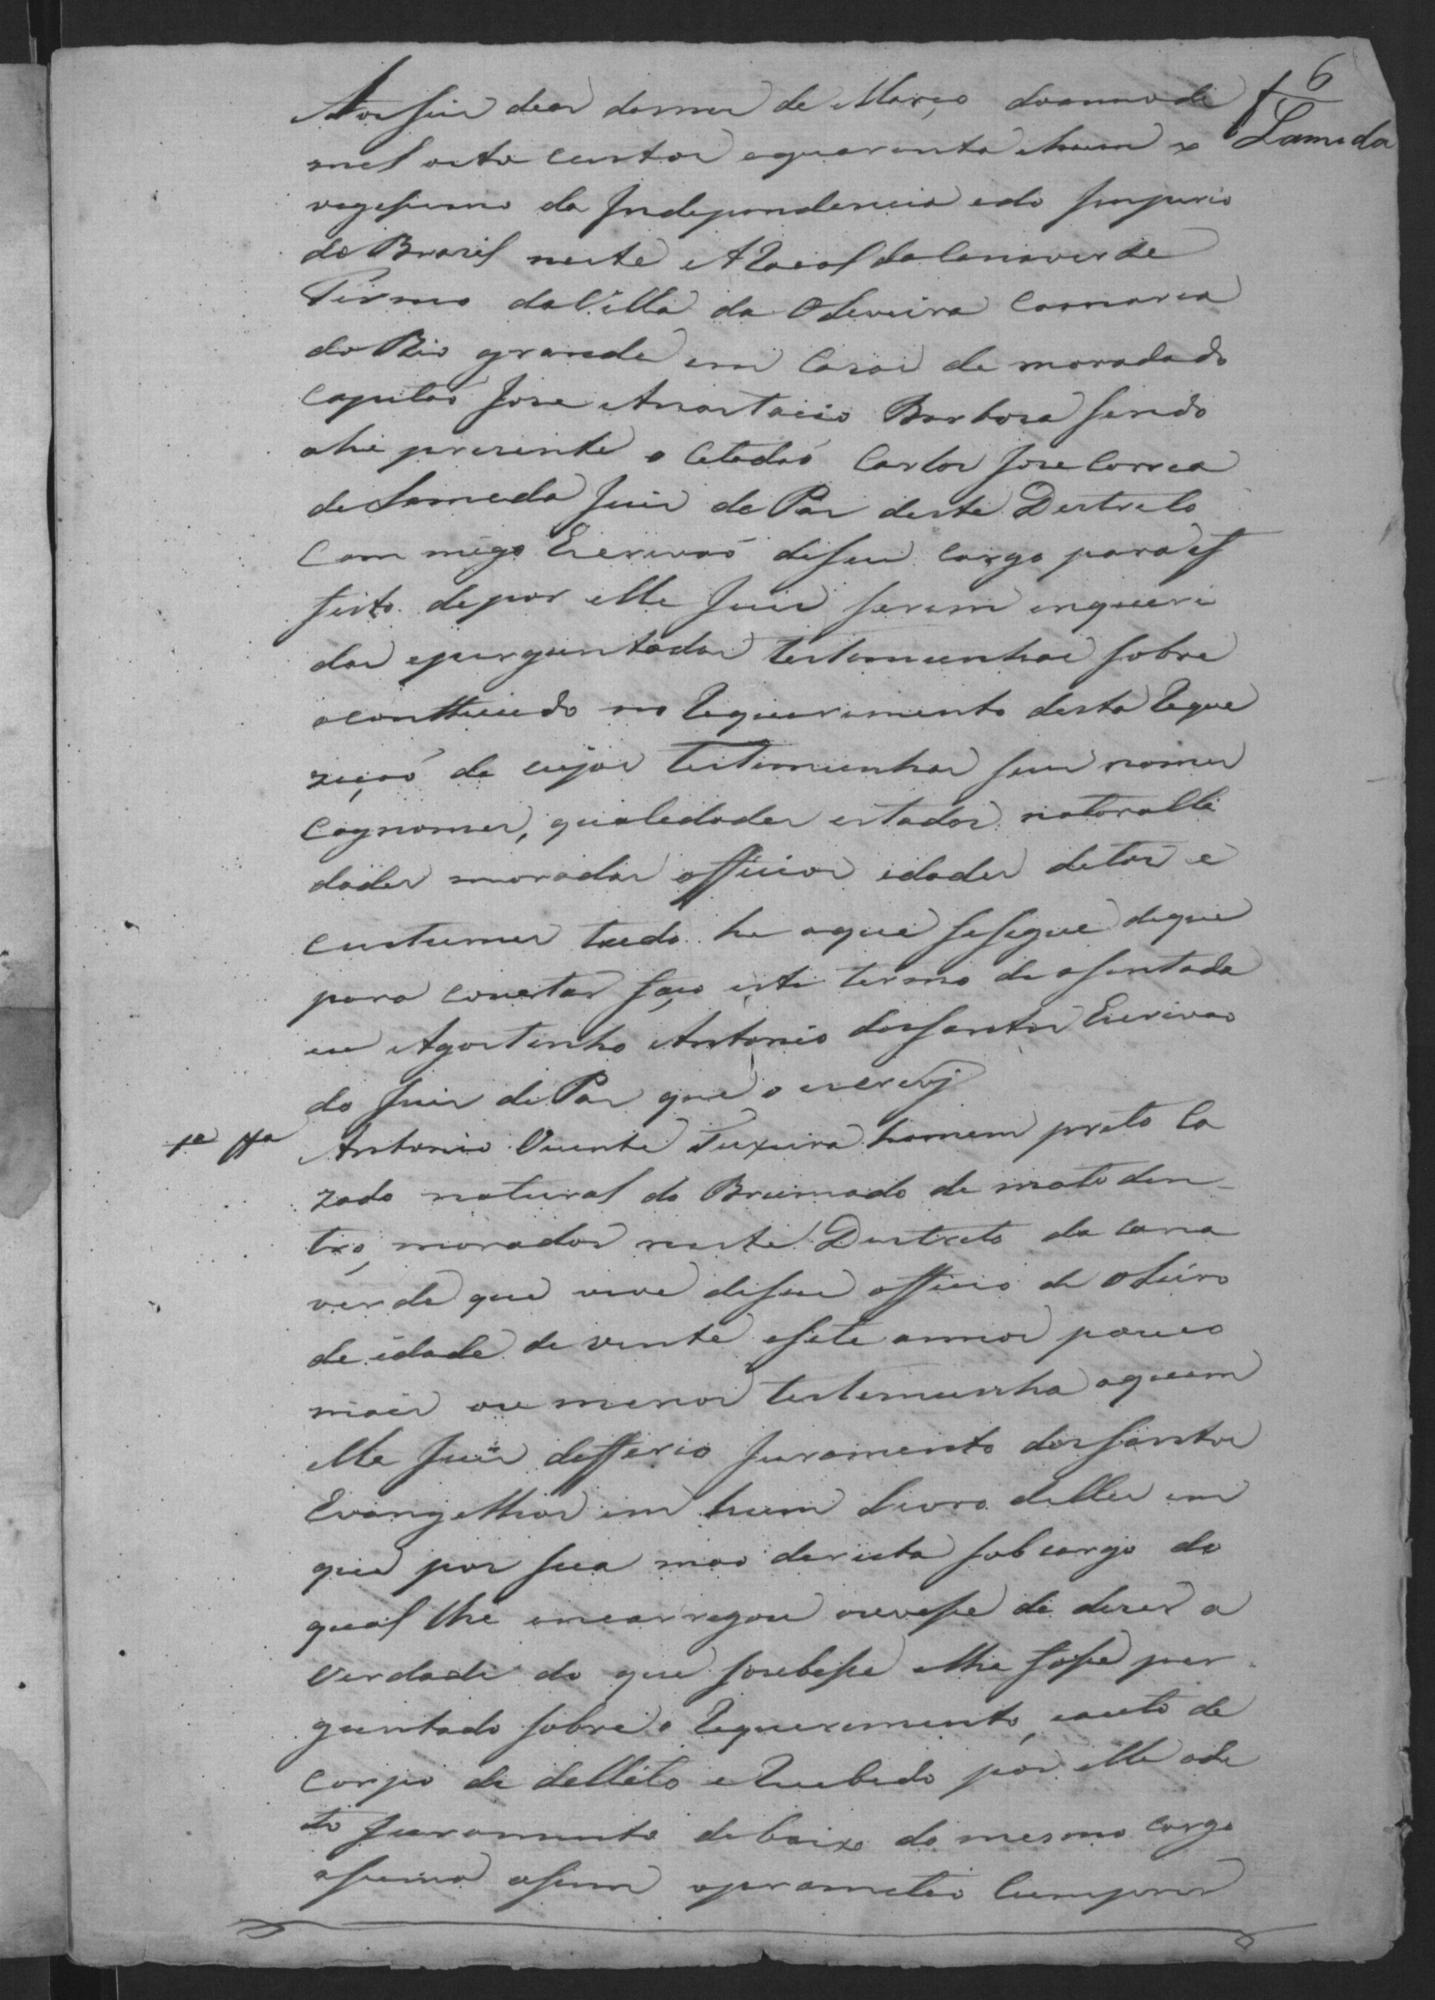 6
Lameda
Aos seis dias domes de Março doannode
mil oito centos equarenta ehum e
vegesimo da Independencia edo Imperio
do Brasil neste Arraial da Canaverde
Termo daVilla da Oliveira Comarca
do Rio grande em Casas de moradado
Capitaõ Jose Anastacio Barbosa sendo
ahi presente o Cidadaõ Carlos Jose Correa
de Lameda Juis de Pas deste Destrito
Com migo Escrivaõ deseu cargo para ef
feito de por elle Juis serem inqueri
das eperguntadas testemunhas sobre
ocontheudo no Requerimento desta Reque
ziçaõ de cujas testemunhas seus nomes
Cognomes, qualedades estados naturalli
dades moradas officios idades ditos e
custumes tudo he oque sesegue deque
para constar faço este termo de asentada
eu Agostinho Antonio dosSantos Escrivao
do Juis de Pas que o escrevy
1ª tta
Antonio Vicente Teixeira homem preto Ca
zado natural do Brumado de mato den-
tro, morador neste Destricto da Cana
verde que vive deseu officio de oleiro
de idade de vinte esete annos pouco
mais ou menos testemunha aquem
elle Juis defferio Juramento dosSantos
Evangelhos em hum Livro delles em
que por sua mao direita sob cargo do
qual lhe encarregou ouvese de dizer a
Verdade do que soubese elhe fose per-
guntado sobre o Requerimento, eauto de
Corpo de dellito eRecebido por elle odi
to Juramento debaixo do mesmo cargo
asima asim oprometeo Comprir